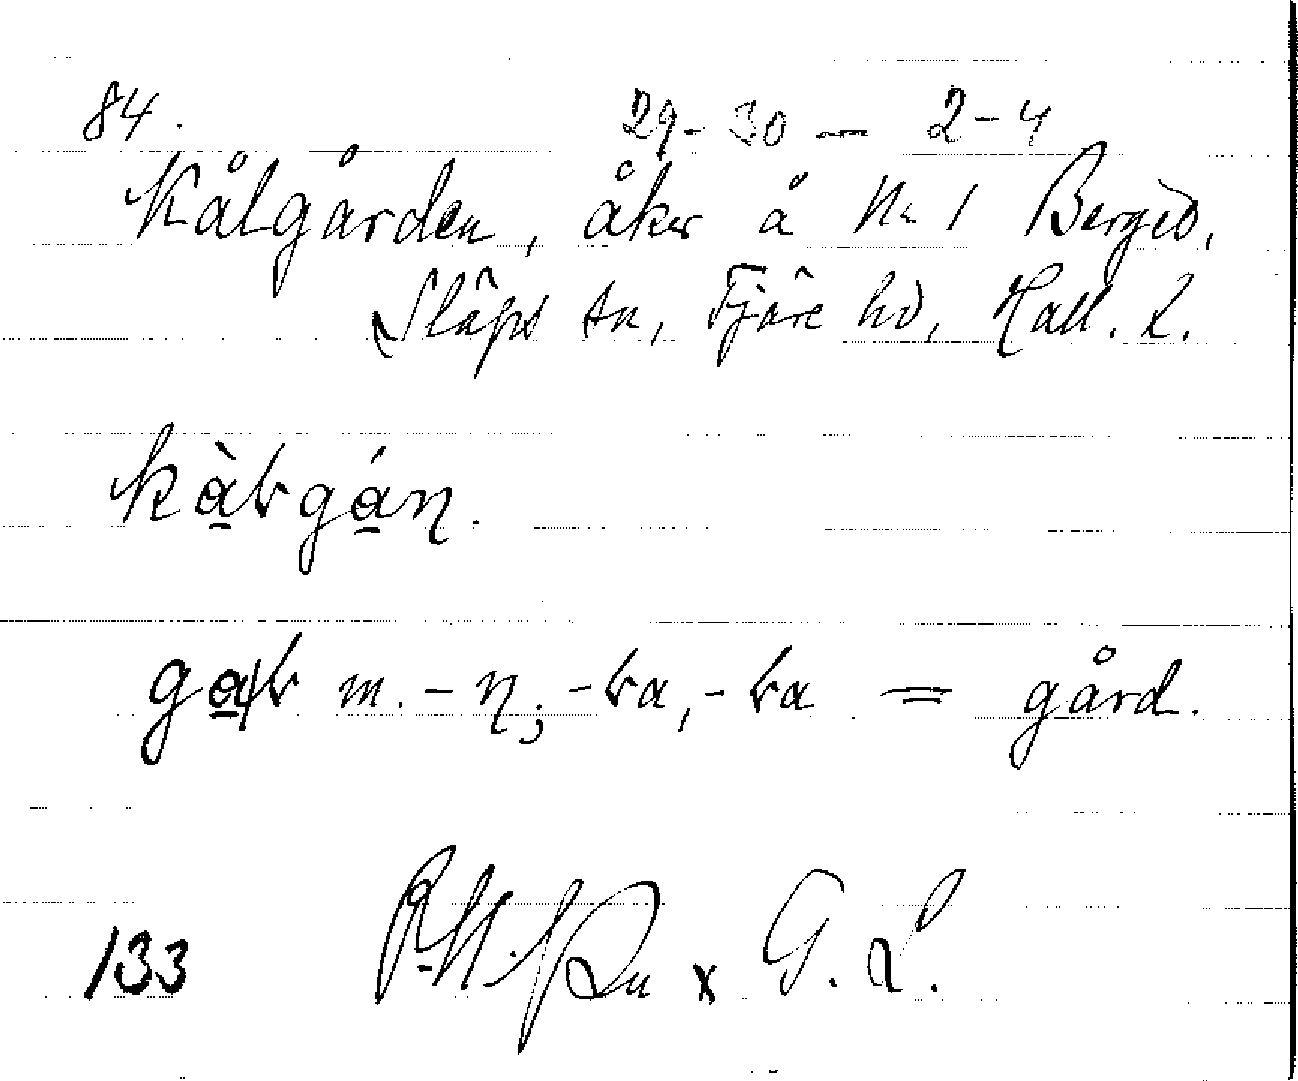 84. 29-30 — 2-4
Kålgården, åker å No 1 Berged,
Släps sn, Fjäre hd, Hall. L.
kàƚgáη.
gaƚ m. -η; -ƚa, -ƚa = gård.
133 x G. L.